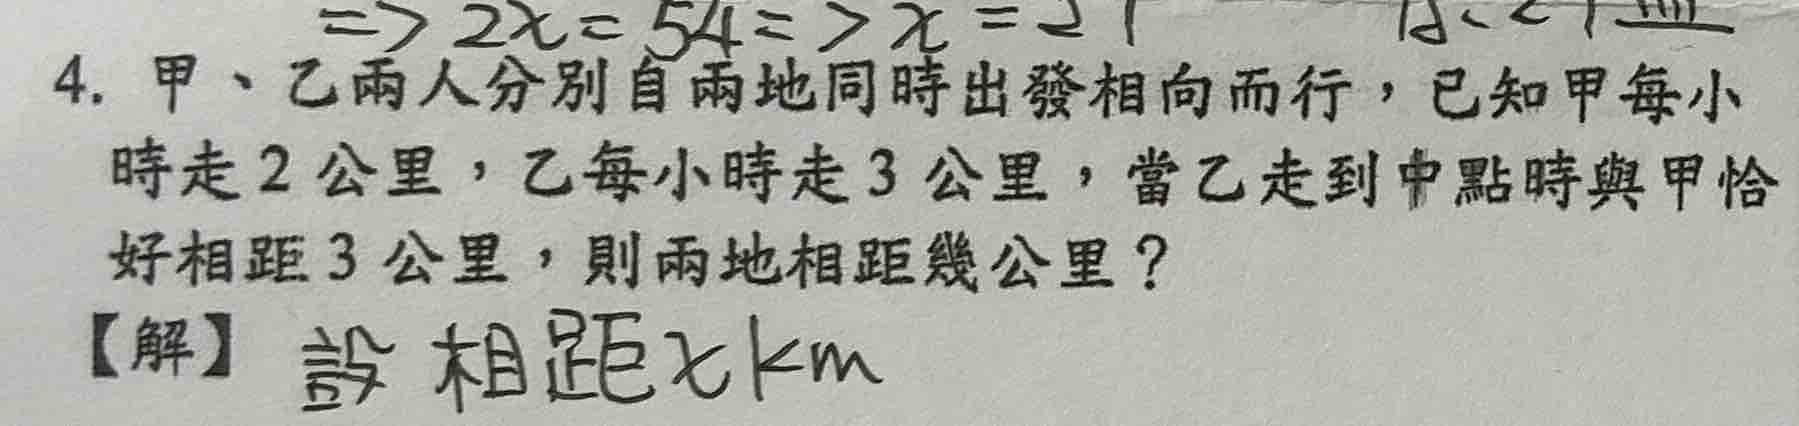 => 2x = 54 => x =
4. 甲、乙兩人分別自兩地同時出發相向而行，已知甲每小
時走2公里，乙每小時走3公里，當乙走到中點時與甲恰
好相距3公里，則兩地相距幾公里？
【解】 設相距x km